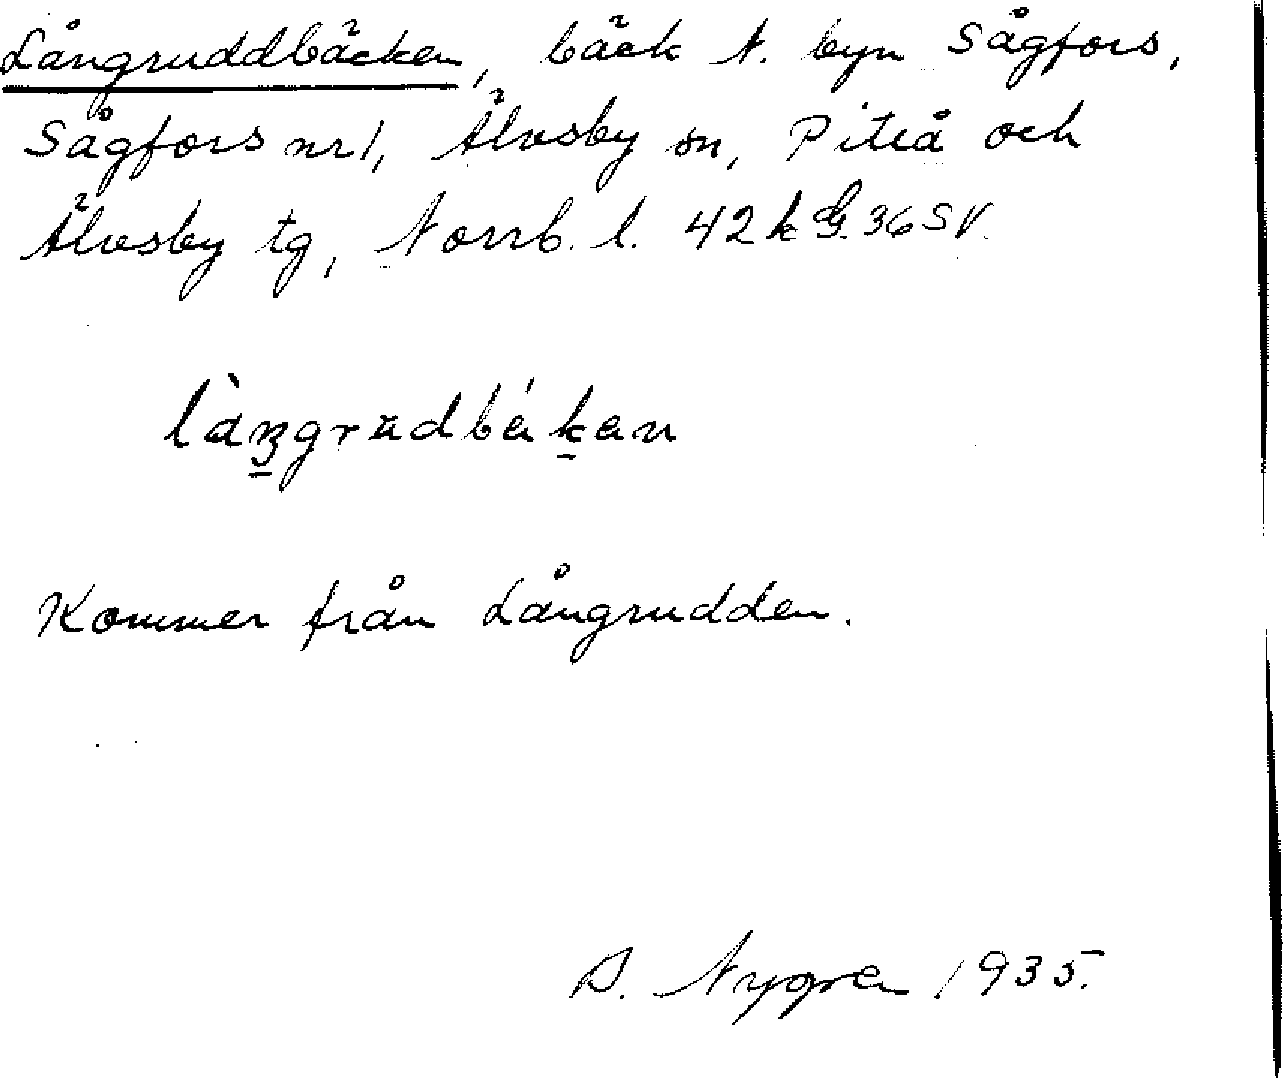 Långruddbäcken, bäck N. byn Sågfors,
Sågfors nr 1, Älvsby sn, Piteå och
Älvsby tg, Norrb. l. 42 k G. 36 SV.
Kommer från Långrudden.
A. Nygren 1935.